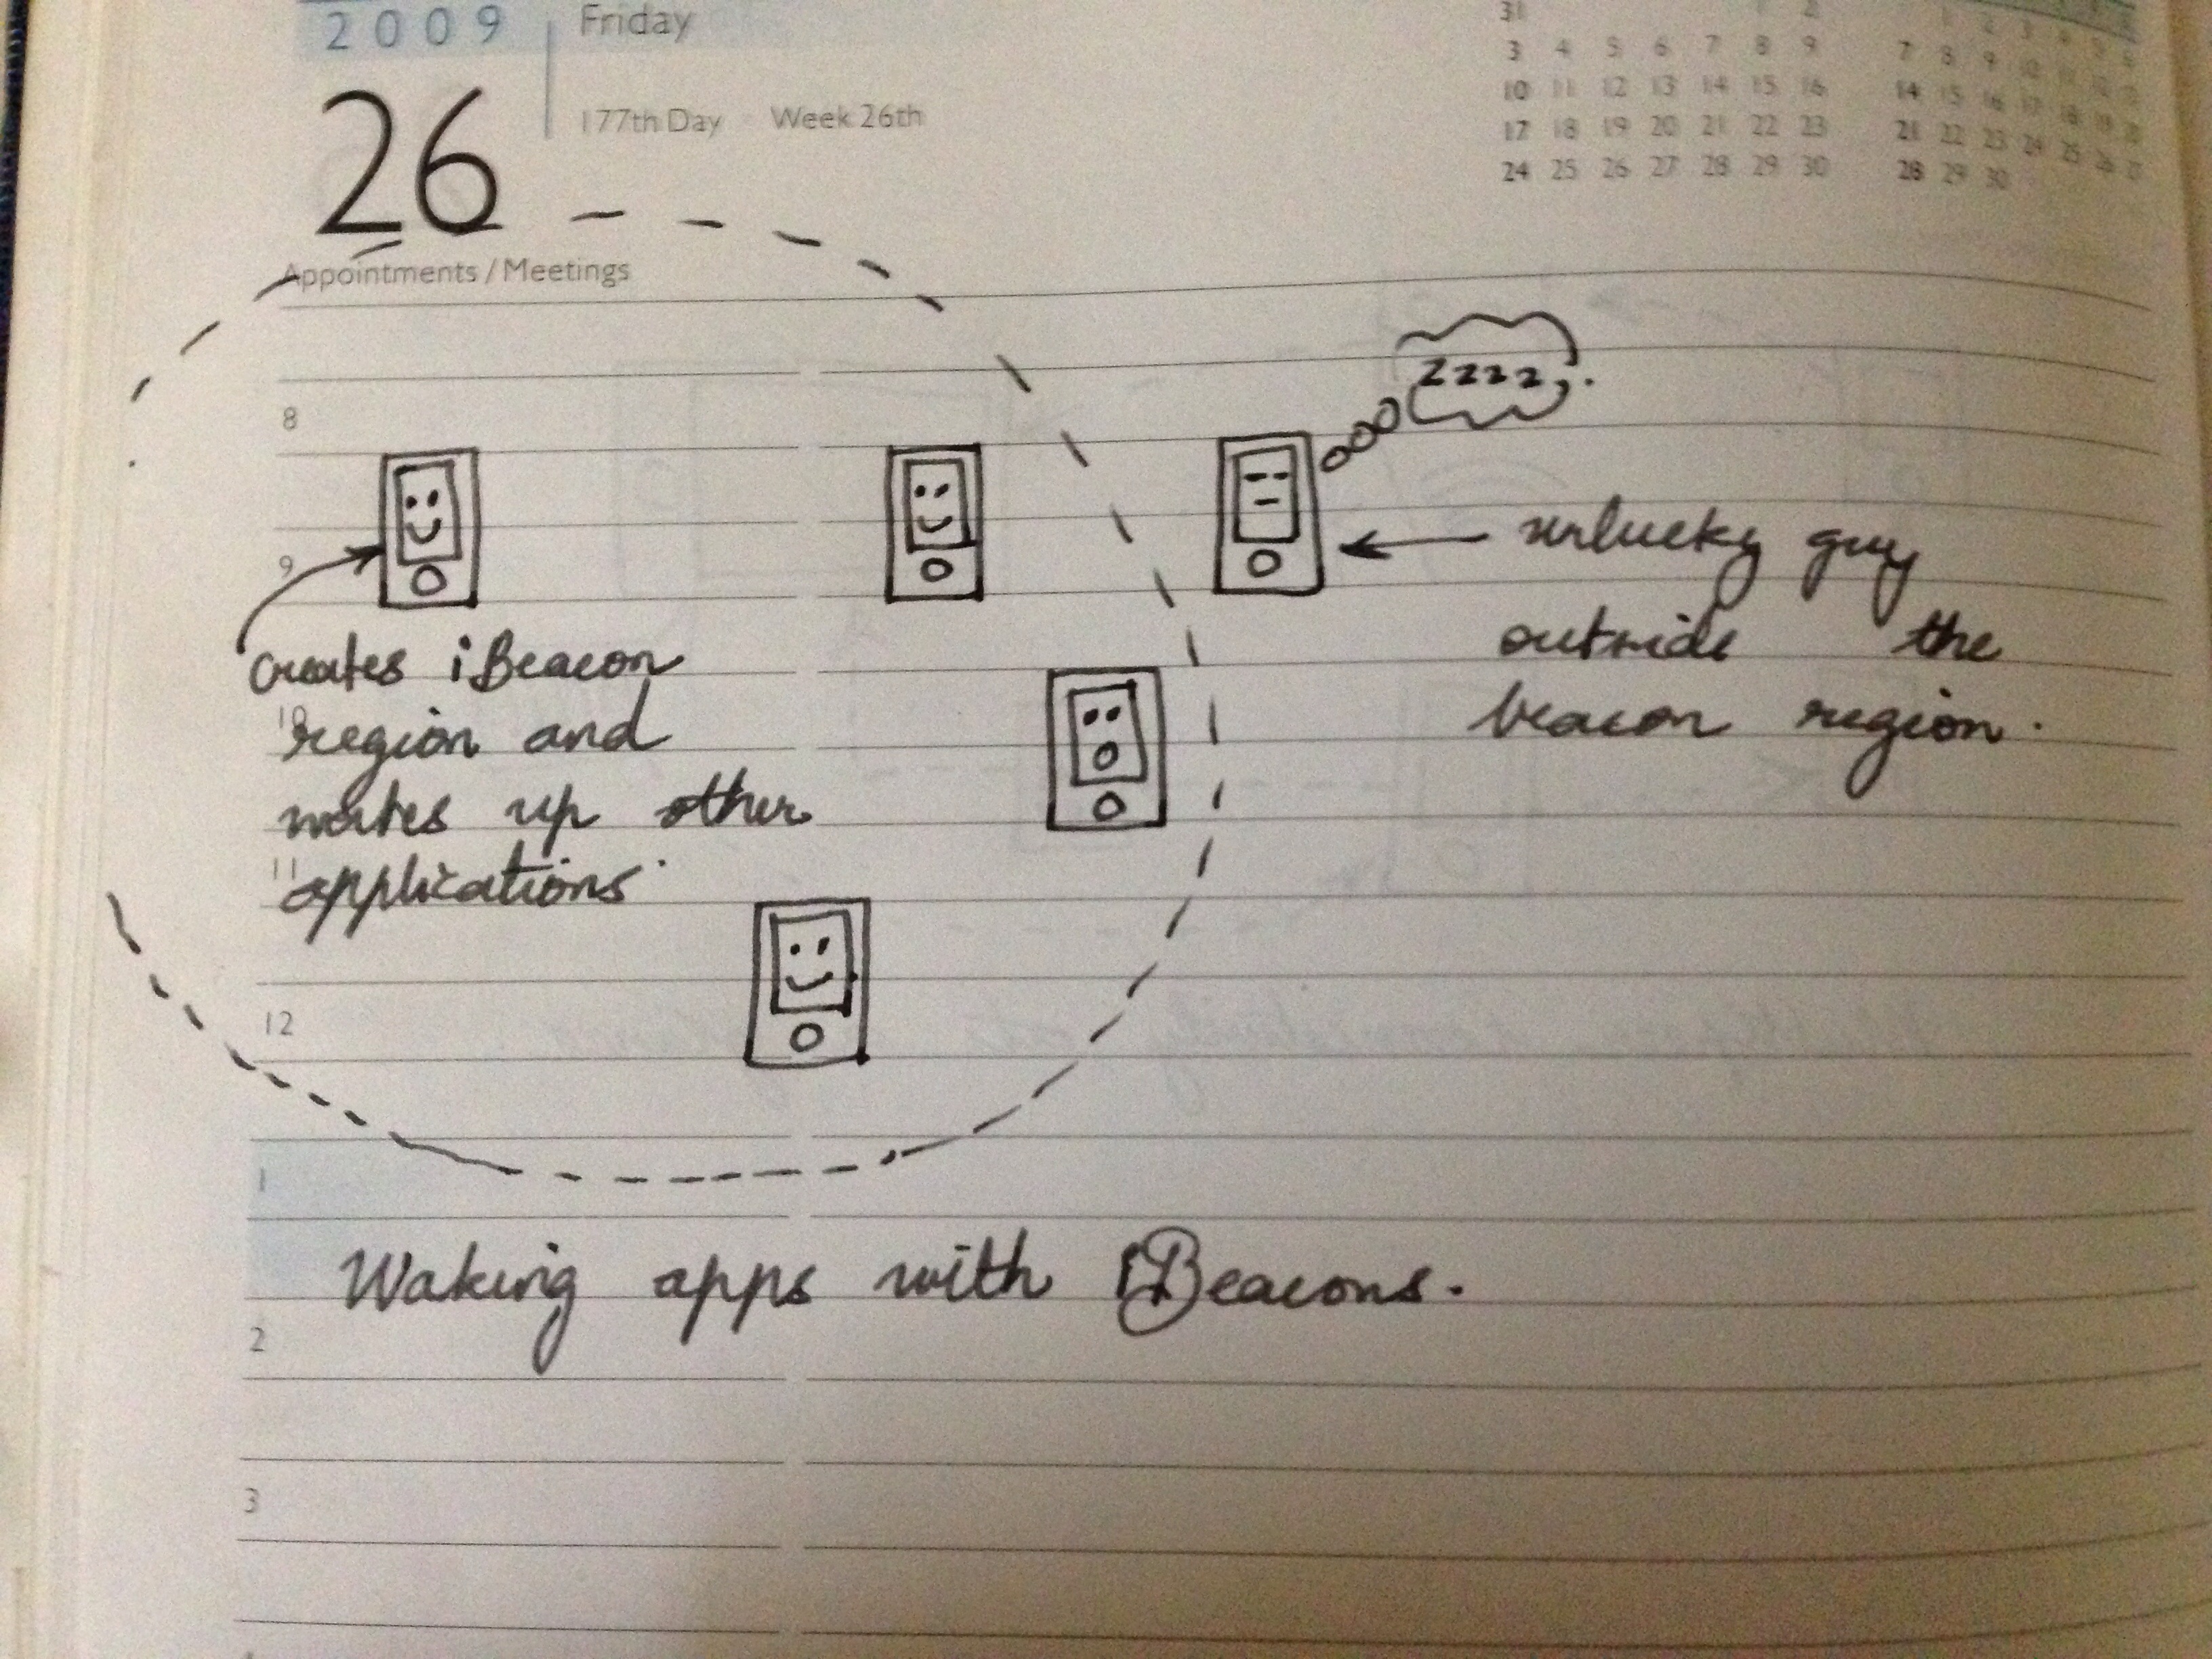 2009 Friday
26
177th Day Week 26th
31 1 2
3 4 5 6 7 8 9
10 11 12 13 14 15 16
17 18 19 20 21 22 23
24 25 26 27 28 29 30
1 2 3 4 5 6
7 8 9 10 11 12 13
14 15 16 17 18 19 20
21 22 23 24 25 26 27
28 29 30
Appointments / Meetings
zzzz..
8
unlucky guy
outside the
beacon region.
9
creates iBeacon
10
region and
wakes up other
11
applications.
12
1
Waking apps with iBeacons.
2
3